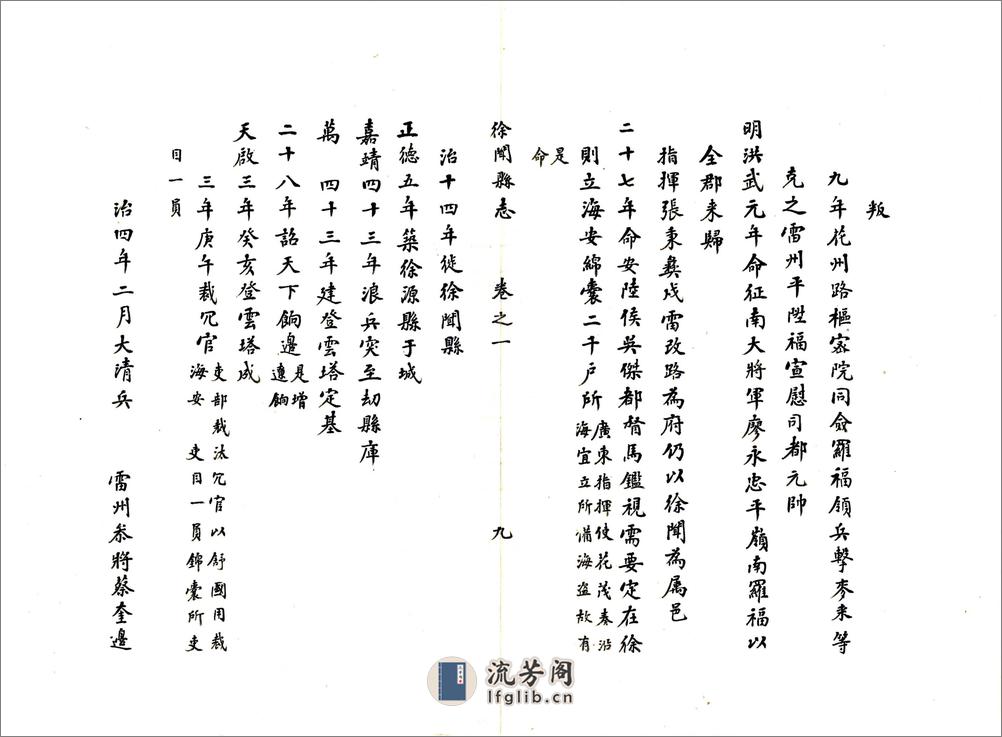 叛
九年花州路樞密院同僉羅福領兵擊麥来等
克之雷州平陞福宣慰司都元帥
明洪武元年命征南大將軍廖永忠平嶺南羅福以
全郡来歸
指揮張秉彝戍雷改路為府仍以徐聞為属邑
二十七年命安陸侯吳傑都督馬鑑視需要定在徐
則立海安綿囊二千戶所
廣東指揮使花茂奏沿
海宜立所備海盗故有
是
命
徐聞縣志 卷之一 九
治十四年徙徐聞縣
正德五年築徐源縣于城
嘉靖四十三年浪兵突至劫縣庫
萬 四十三年建登雲塔定基
二十八年詔天下餉邊
是增
遼餉
天啟三年癸亥登雲塔成
三年庚午裁冗官
吏部裁汰冗官以舒國用裁
海安 吏目一員錦囊所吏
目一員
治四年二月大清兵 雷州叅將蔡奎邊
流芳阁
lfglib.cn